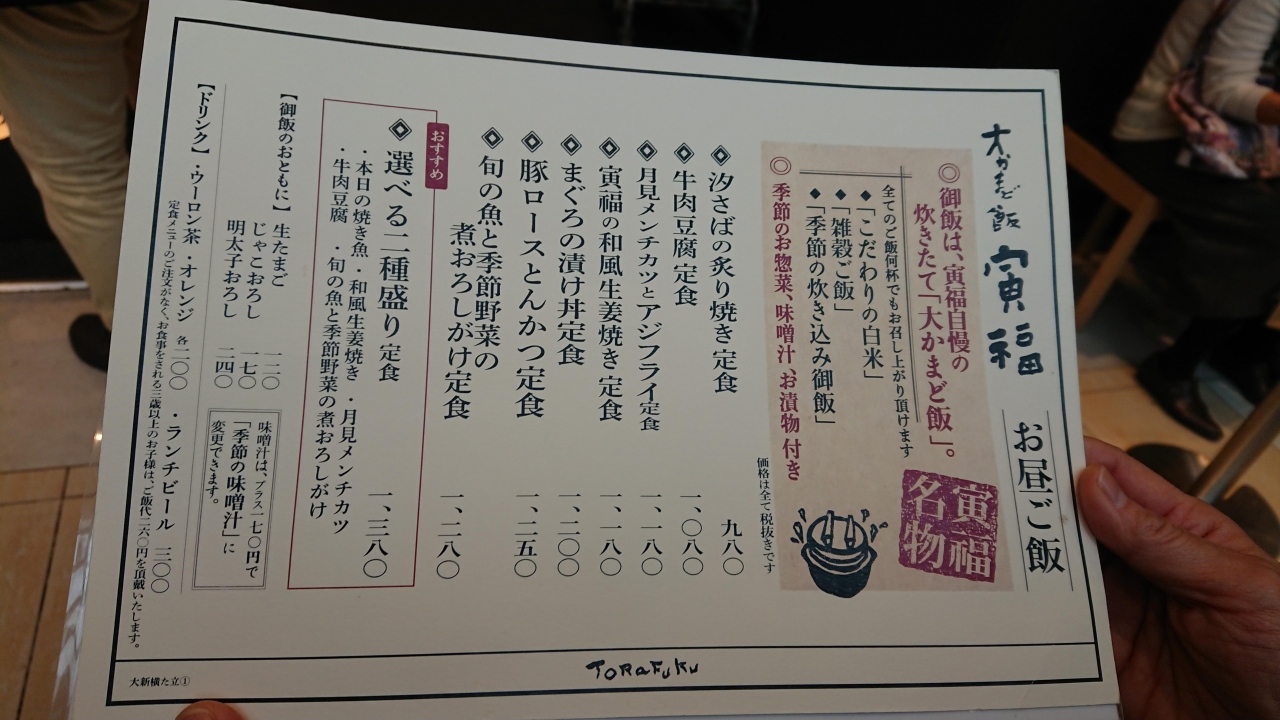 大かまど飯 寅福
お昼ご飯
◎御飯は、寅福自慢の
炊きたて「大かまど飯」。
全てのご飯何杯でもお召し上がり頂けます
◆「こだわりの白米」
◆「雑穀ご飯」
◆「季節の炊き込み御飯」
◎季節のお惣菜、味噌汁、お漬物付き
寅福
名物
価格は全て税抜きです
汐さばの炙り焼き定食 九八〇
牛肉豆腐定食 一、〇八〇
月見メンチカツとアジフライ定食 一、一八〇
寅福の和風生姜焼き定食 一、一八〇
まぐろの漬け丼定食 一、二〇〇
豚ロースとんかつ定食 一、二五〇
旬の魚と季節野菜の
煮おろしがけ定食 一、二八〇
おすすめ
選べる二種盛り定食 一、三八〇
・本日の焼き魚 ・和風生姜焼き ・月見メンチカツ
・牛肉豆腐 ・旬の魚と季節野菜の煮おろしがけ
【御飯のおともに】 生たまご 一二〇
じゃこおろし 一七〇
明太子おろし 二四〇
味噌汁は、プラス一七〇円で
「季節の味噌汁」に
変更できます。
【ドリンク】 ・ウーロン茶 ・オレンジ 各二〇〇 ・ランチビール 三〇〇
定食メニューのご注文がなく、お食事をされる三歳以上のお子様は、ご飯代二六〇円を頂戴いたします。
TORAFUKU
大新横た立①